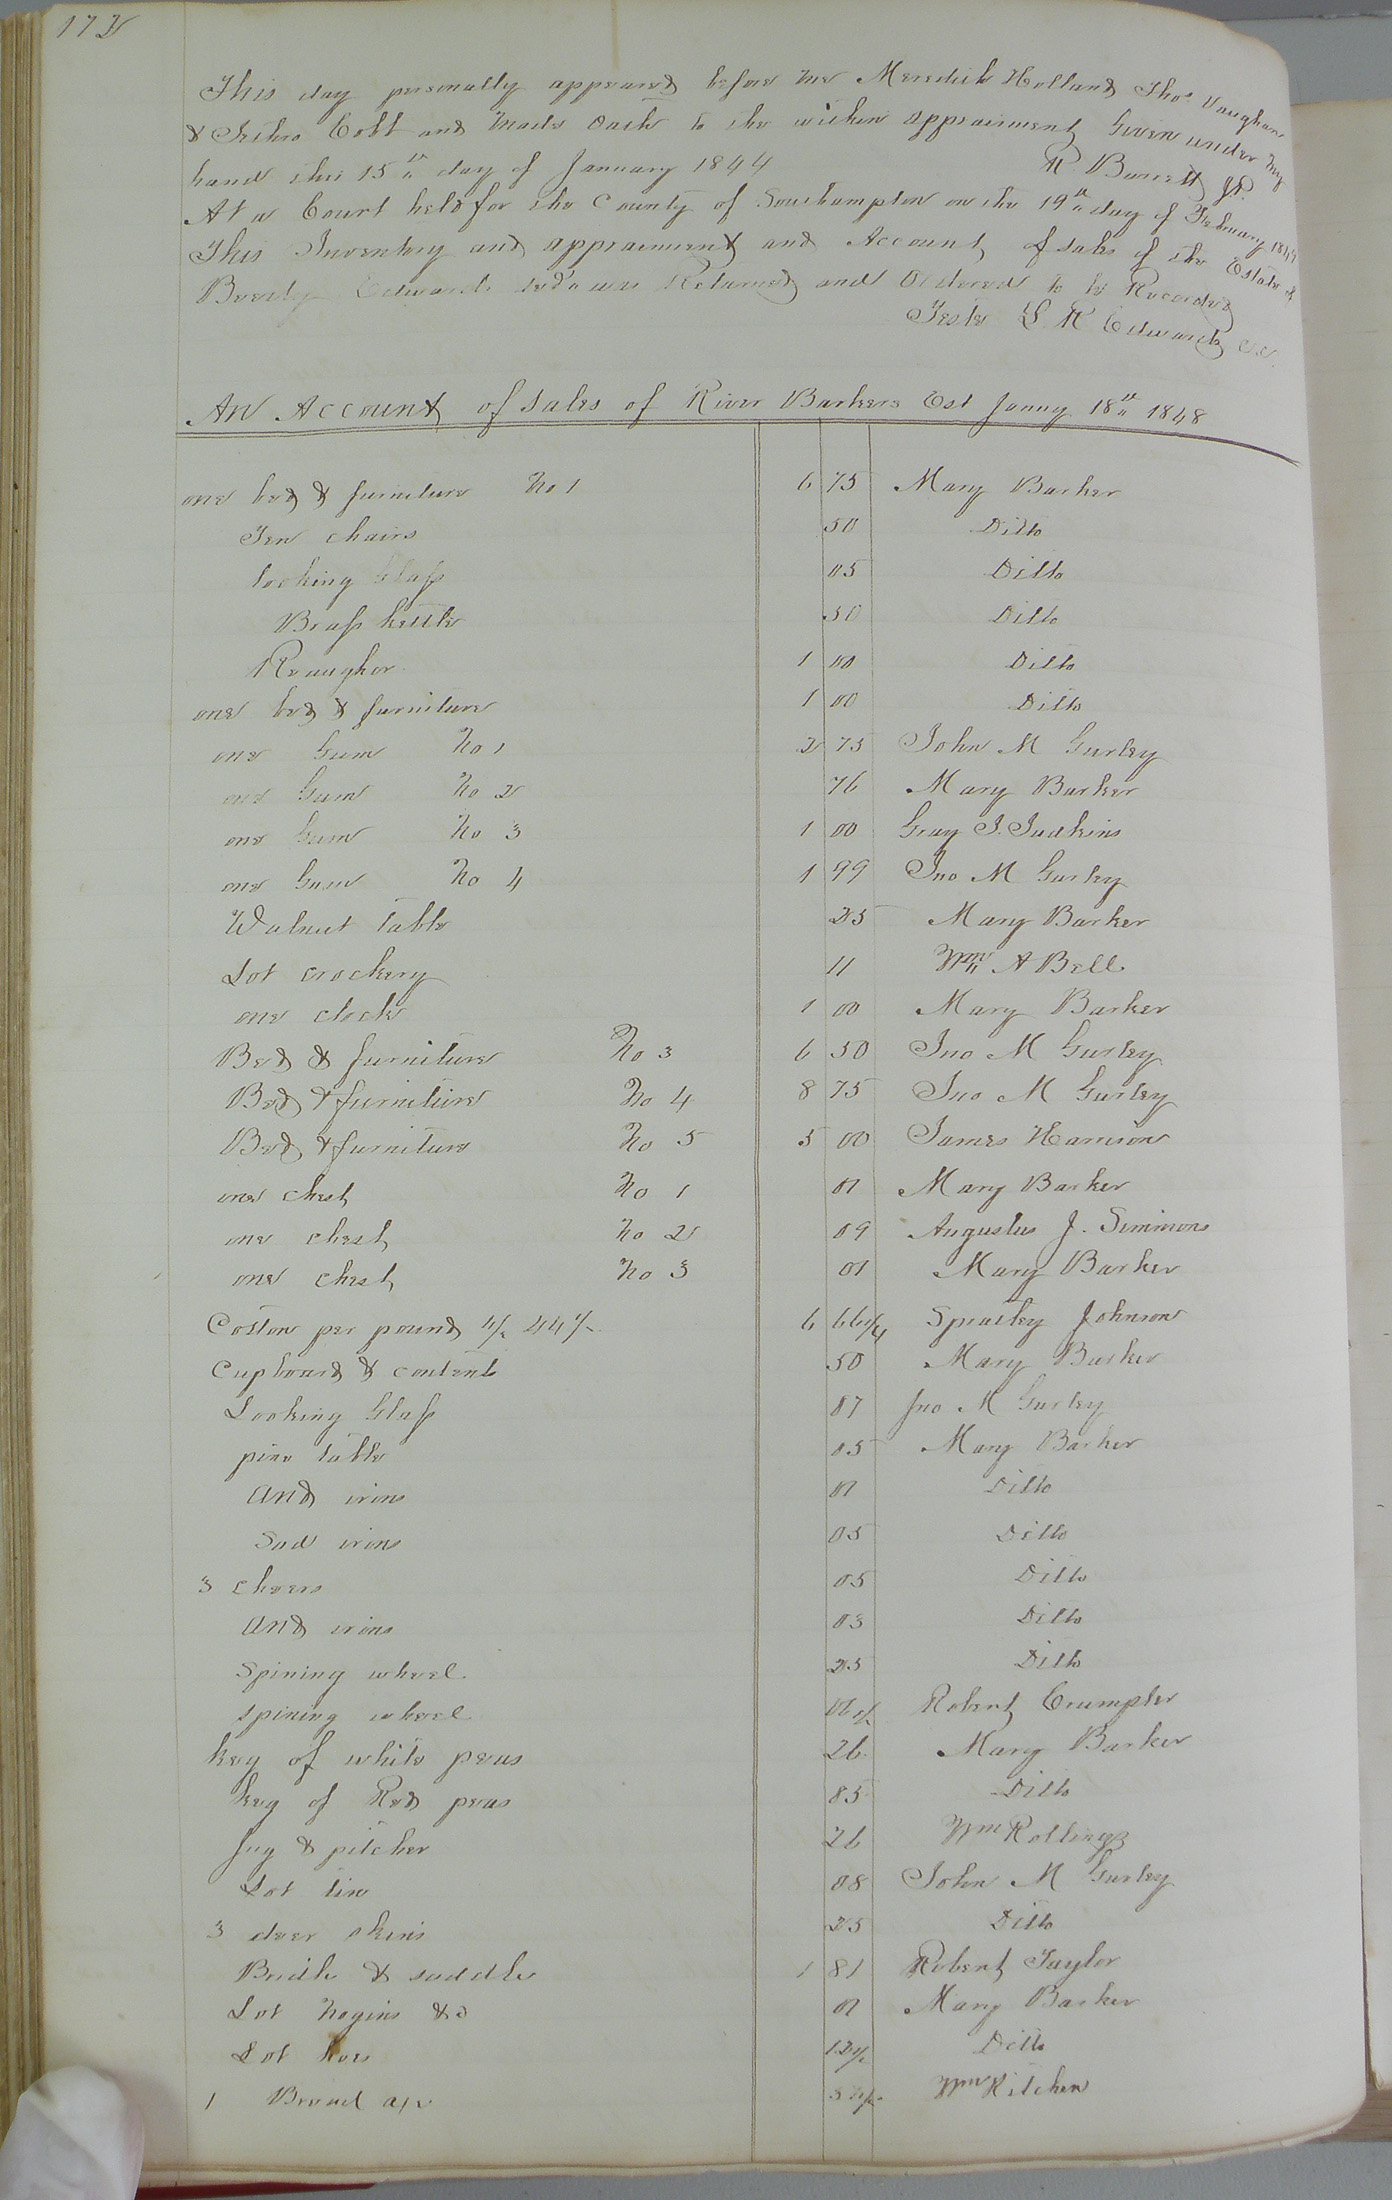 172
This day personally appeared before me Meredith Holland Thos Vaughan
& Jethro Cobb and Made Oath to the within appraisment Given under my
hand this 15th day of January 1844 R Barrett JP.
At a Court held for the County of Southampton on the 19th day of February 1844
This Inventory and appraisment and Account of sales of the Estate of
Beverly Edwards decd was Returned and Ordered to be Recorded
Teste L R Edwards CC
An Account of Sales of River Barkers Est Janny 18th 1848
one bed & furniture No 1 6 75 Mary Barker
Ten chairs 50 Ditto
looking Glass 05 Ditto
Brass kettle 50 Ditto
1 00 Ditto
one bed & furniture 1 00 Ditto
one Gum No 1 2 75 John M Gurley
one Gum No 2 76 Mary Barker
one Gum No 3 1 00 Gray J. Judkins
one Gum No 4 1 99 Jno M Gurley
Walnut table 25 Mary Barker
Lot crockery 11 Wm A Bell
one clock 1 00 Mary Barker
Bed & furniture No 3 6 50 Jno M Gurley
Bed & furniture No 4 8 75 Jno M Gurley
Bed & furniture No 5 5 00 James Harrison
one chest No 1 01 Mary Barker
one chest No 2 09 Augustus J. Simmons
one chest No 3 01 Mary Barker
Cotton per pound 6 66 1/4 Spratley Johnson
Cupboard & contents 50 Mary Barker
Looking Glass 07 Jno M Gurley
pine table 05 Mary Barker
And irons 01 Ditto
Sad irons 05 Ditto
3 cheers 05 Ditto
And irons 03 Ditto
Spining wheel 25 Ditto
spining wheel Robert Crumpler
keg of white peas 26 Mary Barker
keg of Red peas 85 Ditto
Jug & pitcher 26 Wm Rollings
Lot tin 08 John M Gurley
3 deer skins 25 Ditto
Bridle & saddle 1 81 Robert Taylor
Lot Nogins &c 01 Mary Barker
Lot hoes 12 1/2 Ditto
1 Broad axe Wm Kitchen